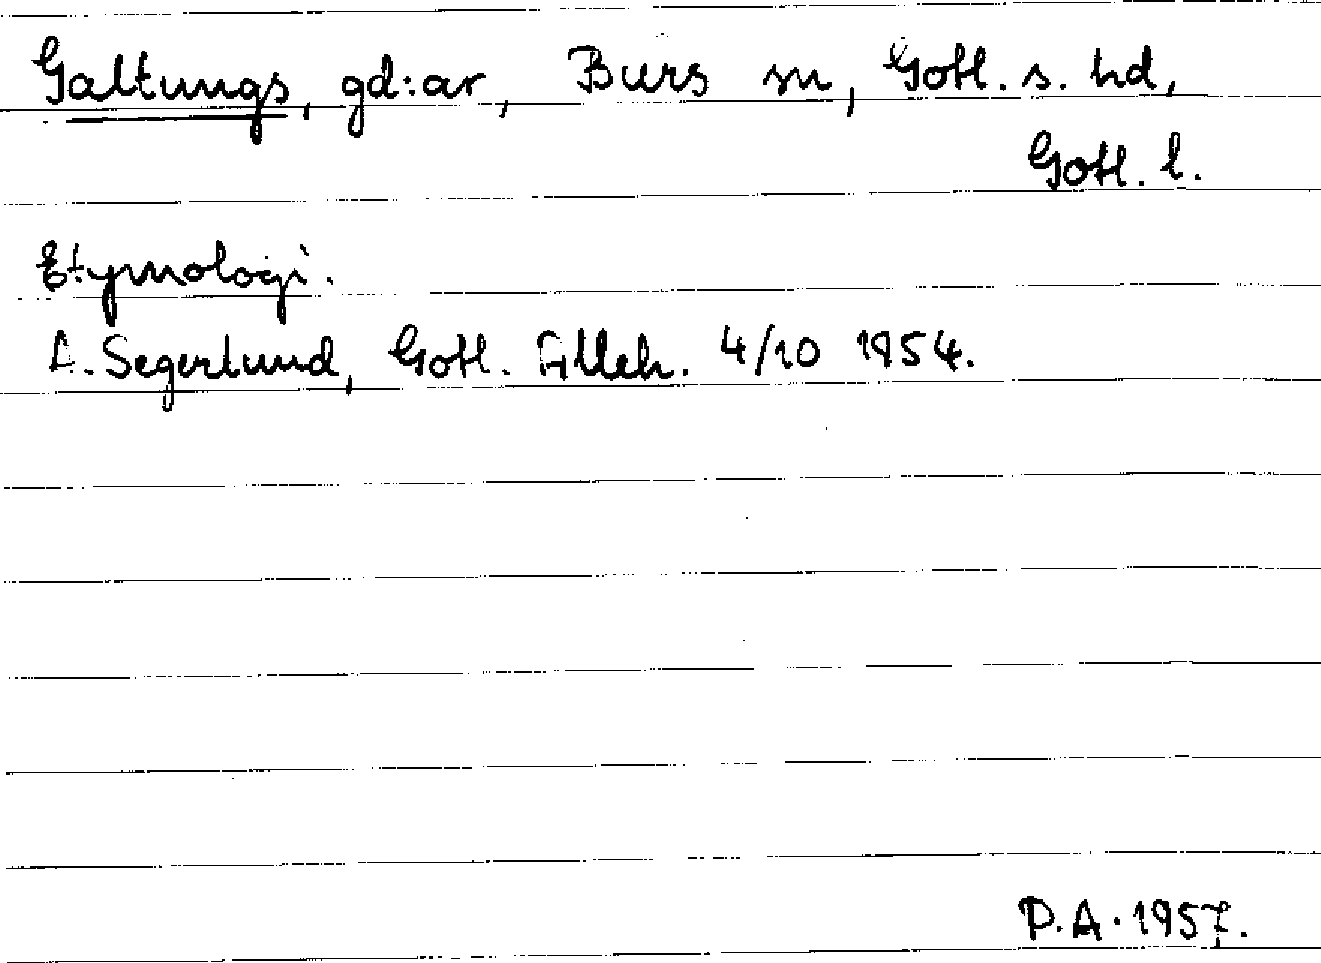 Galtungs, gd:ar, Burs sn, Gotl. s. hd,
Gotl. l.
Etymologi.
A. Segerlund, Gotl. Alleh. 4/10 1954.
P.A. 1957.